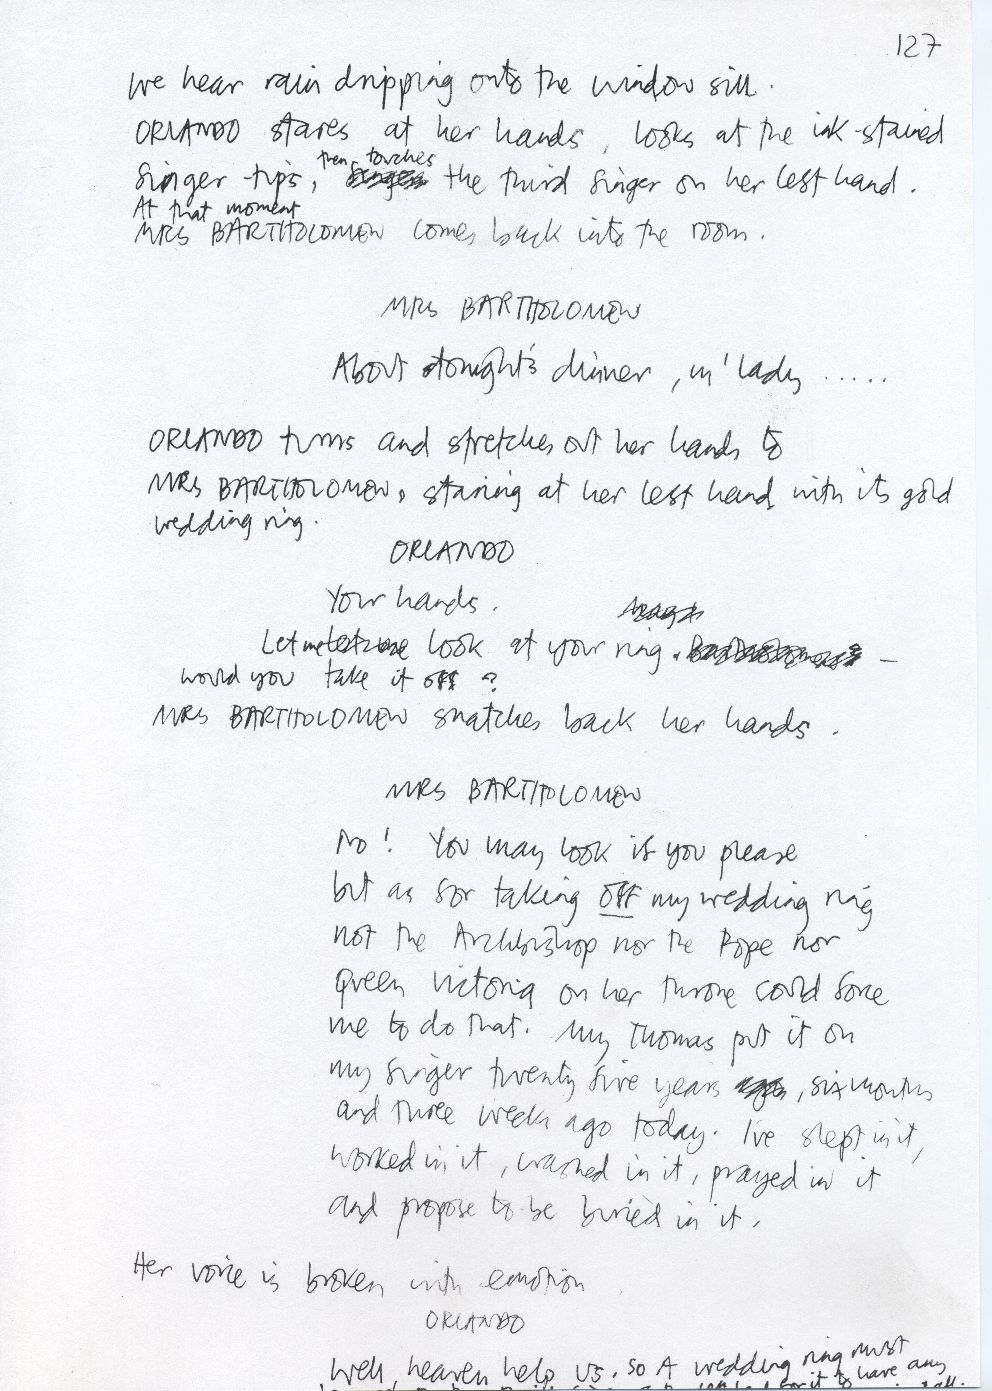 127
We hear rain dripping onto the window sill.
ORLANDO stares at her hands, looks at the ink-stained
then touches
finger tips, the third finger on her left hand.
At that moment
MRS BARTHOLOMEW comes back into the room.
MRS BARTHOLOMEW
About tonight's dinner, m'lady .....
ORLANDO turns and stretches out her hands to
MRS BARTHOLOMEW, staring at her left hand with its gold
wedding ring.
ORLANDO
Your hands.
Let me look at your ring. –
would you take it off ?
MRS BARTHOLOMEW snatches back her hands.
MRS BARTHOLOMEW
No! You may look if you please
but as for taking off my wedding ring
not the Archbishop nor the Pope nor
Queen Victoria on her throne could force
me to do that. My Thomas put it on
my finger twenty five years ago, six months
and three weeks ago today. I've slept in it,
worked in it, washed in it, prayed in it
and propose to be buried in it.
Her voice is broken with emotion
ORLANDO
Well, heaven help us. So A wedding ring must
for it to have any